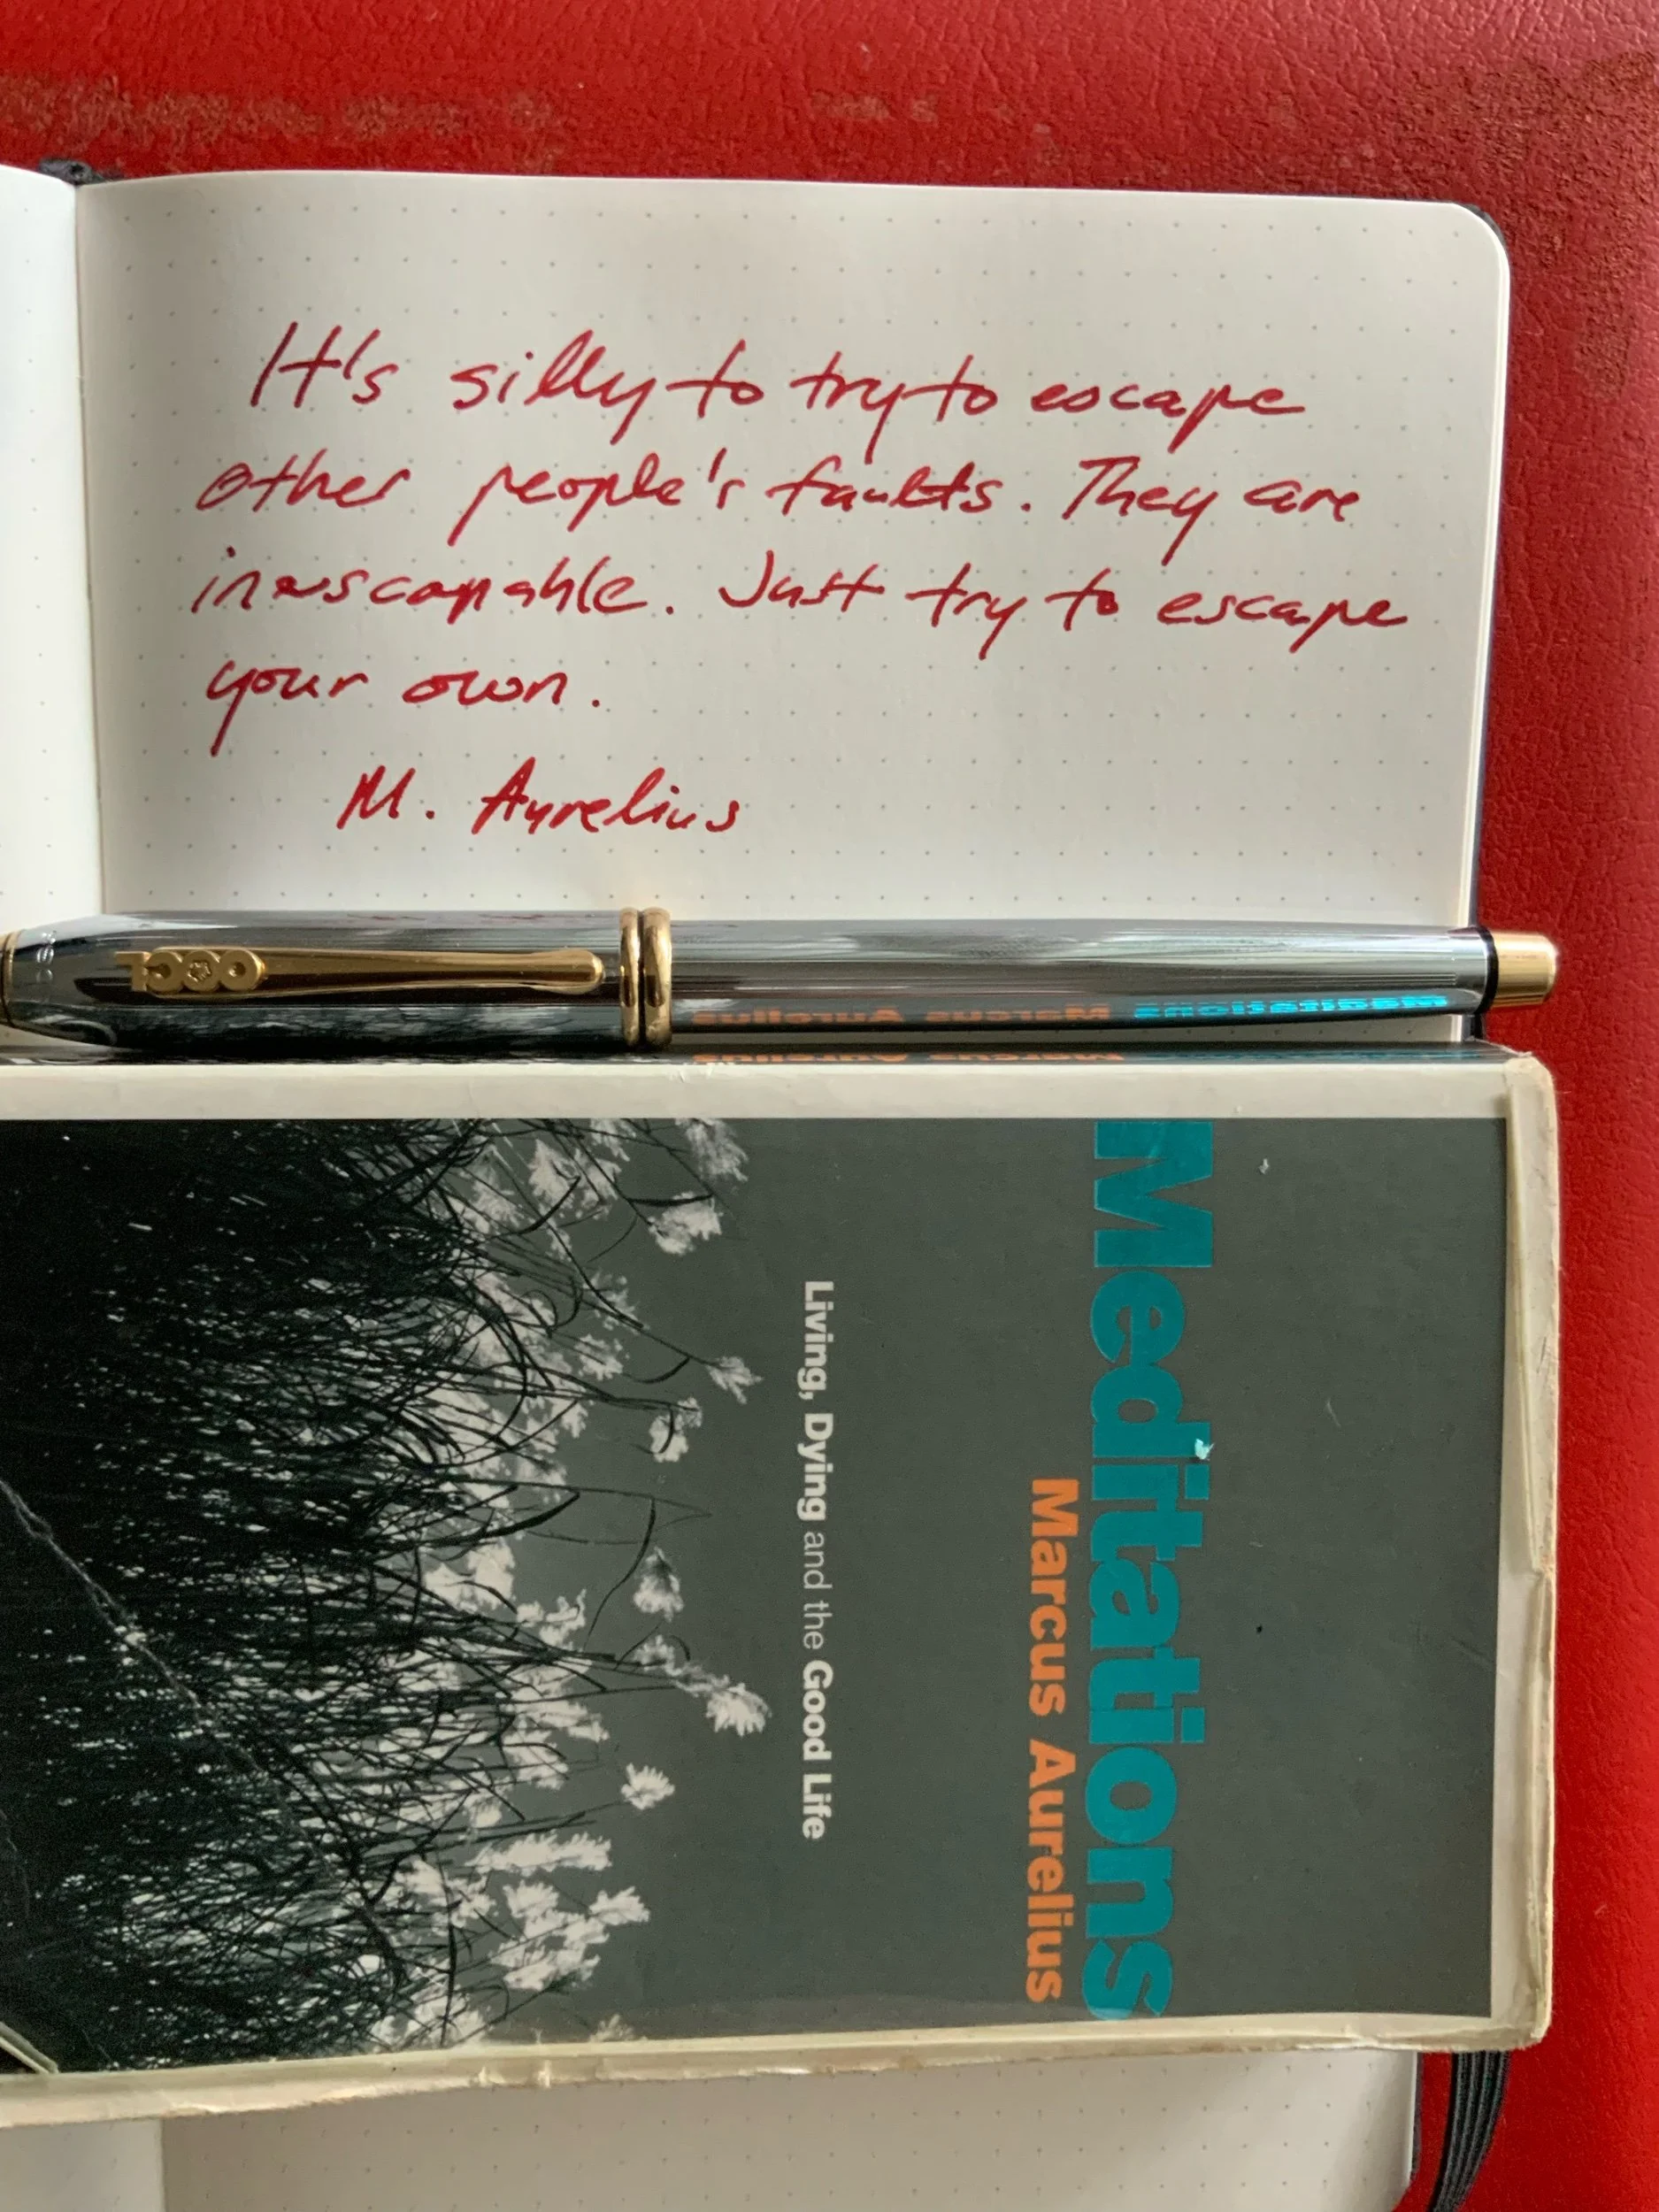 It's silly to try to escape
other people's faults. They are
inescapable. Just try to escape
your own.
M. Aurelius
Marcus Aurelius Meditations
Marcus Aurelius
Meditations
Marcus Aurelius
Living, Dying and the Good Life